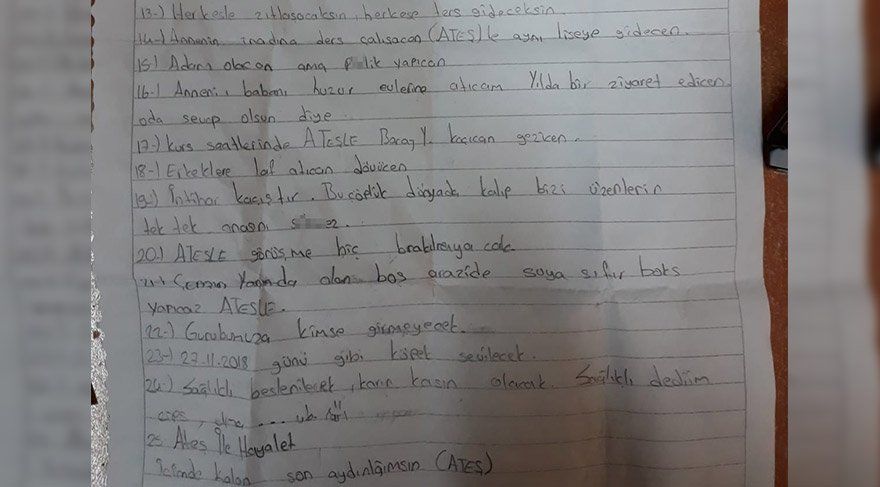 13-) Herkesle zıtlaşacaksın, herkese ters gideceksin
14-) Annenin inadına ders çalışacan (ATEŞ)le aynı liseye gidecen.
15-) Adam olacan ama p lik yapıcan
16-) Anneni, babanı huzur evlerine atıcam Yılda bir ziyaret edicen
oda sevap olsun diye
17-) Kurs saatlerinde ATEŞLE Baray Y. kaçıcan gezicen.
18-) Erkeklere laf atıcan dövücen
19-) İntihar kaçıştır. Bu çöplük dünyada kalıp bizi üzenlerin
tek tek anasını s ez.
20-) ATEŞLE görüşme hiç bırakılmayacak
21-) yanında olan boş arazide suya sıfır boks
yapıcaz ATEŞLE.
22-) Gurubumuza kimse girmeyecek.
23-) 27.11.2018 günü gibi köpek sevilecek.
24-) Sağlıklı beslenilecek, karın kasın olacak. Sağlıklı dediim
cips,
25 Ateş İle Hayalet
İçimde kalan son aydınlığımsın (ATEŞ)